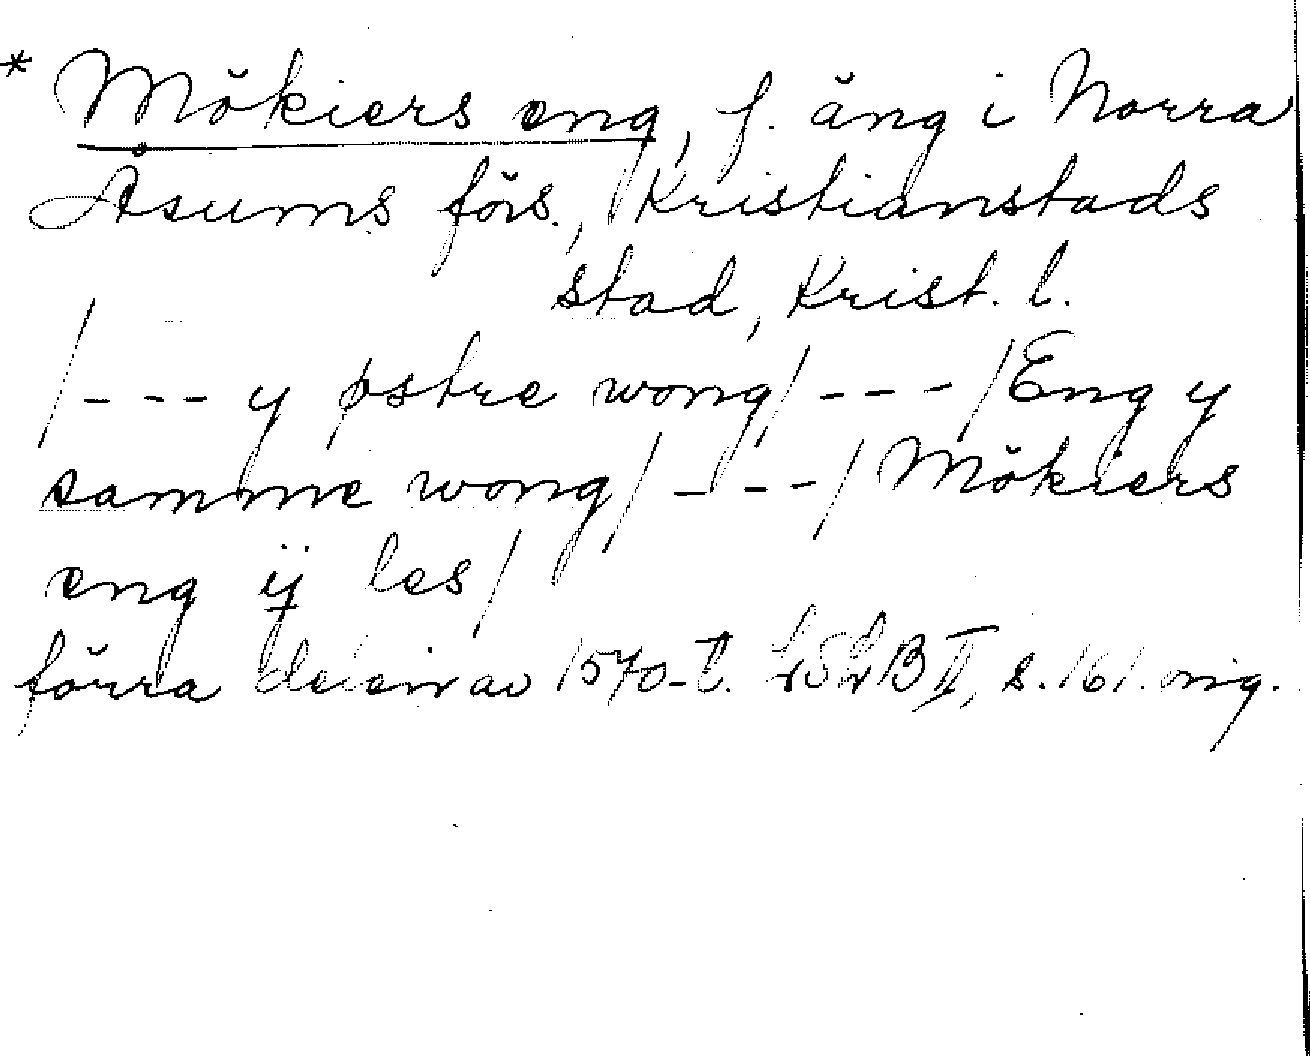 * Mökiers eng, f. äng i Norra
Åsums förs., Kristianstads
stad, Krist. l.
/--- y østre wong/---/Eng y
samme wong/---/Mökiers
eng ij les/
förra delen av 1570-t. LSLB II, s. 161. orig.